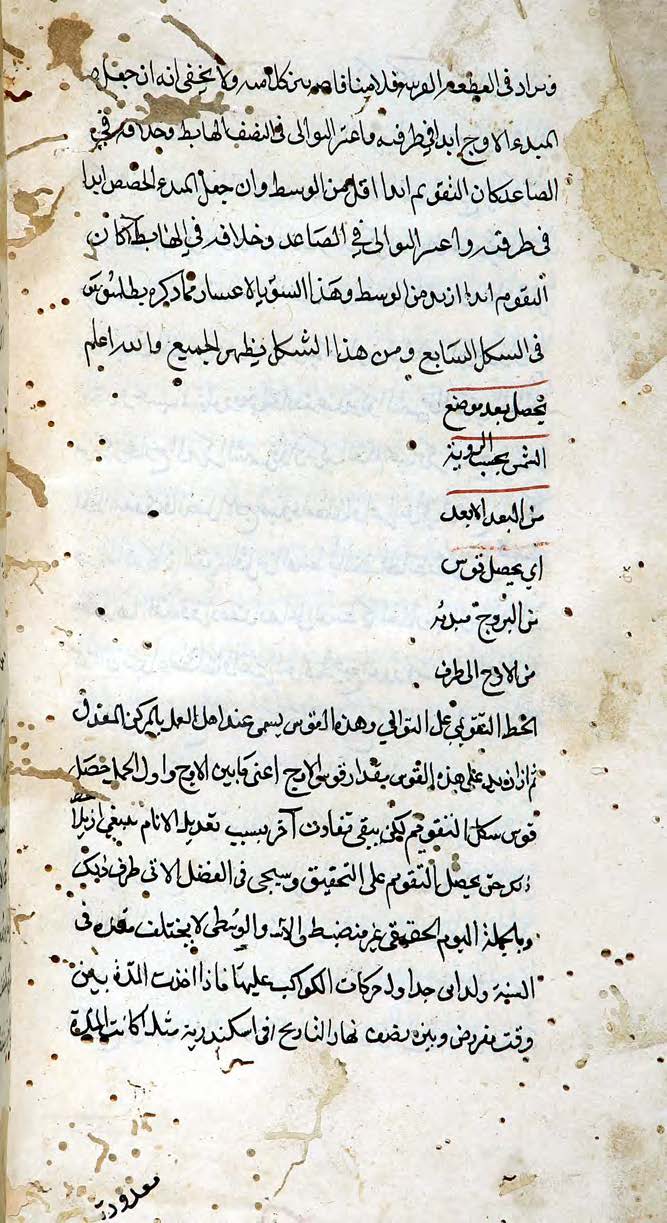 ويزاد في القطعة القريبة فلا منافاة بين كلاميه ولا يخفى انه ان جعل
المبدء الاوج ابدا في طرفيه واعتبر التوالي في النصف الهابط وخلافه في
الصاعد كان التقويم ابدا اقل من الوسط وان جعل المبدء الحضيض ابدا
في طرفيه واعتبر التوالي في الصاعد وخلافه في الهابط كان
التقويم ابدا ازيد من الوسط وهذا الاعتبار مما ذكره بطلميوس
في الشكل السابع ومن هذا الشكل يظهر الجميع والله اعلم
يحصل بعد موضع
الشمس بحسب الروية
من البعد الابعد
اي يحصل قوس
من البروج مبدئه
من الاوج الى طرف
الخط التقويمي على التوالي وهذه القوس يسمى عند اهل العمل بالمركز المعدل
ثم اذا زيد على هذه القوس بقدار قوس الاوج اعني ما بين الاوج واول الحمل حصل
قوس التقويم لكن يبقى تفاوت آخر بسبب تعديل الايام ينبغي ان يزاد
ذلك حتى يحصل التقويم على التحقيق وسيجي في الفصل الآتي طرف ذلك
وبالجملة اليوم الحقيقي غير منضبط والوسطي لا يختلف مقداره في
السنة ولذا بني جداول حركات الكواكب عليها فاذا اخذت المدة بين
وقت مفروض وبين نصف نهار التاريخ في اسكندرية مثلا كانت المدة
معدودة